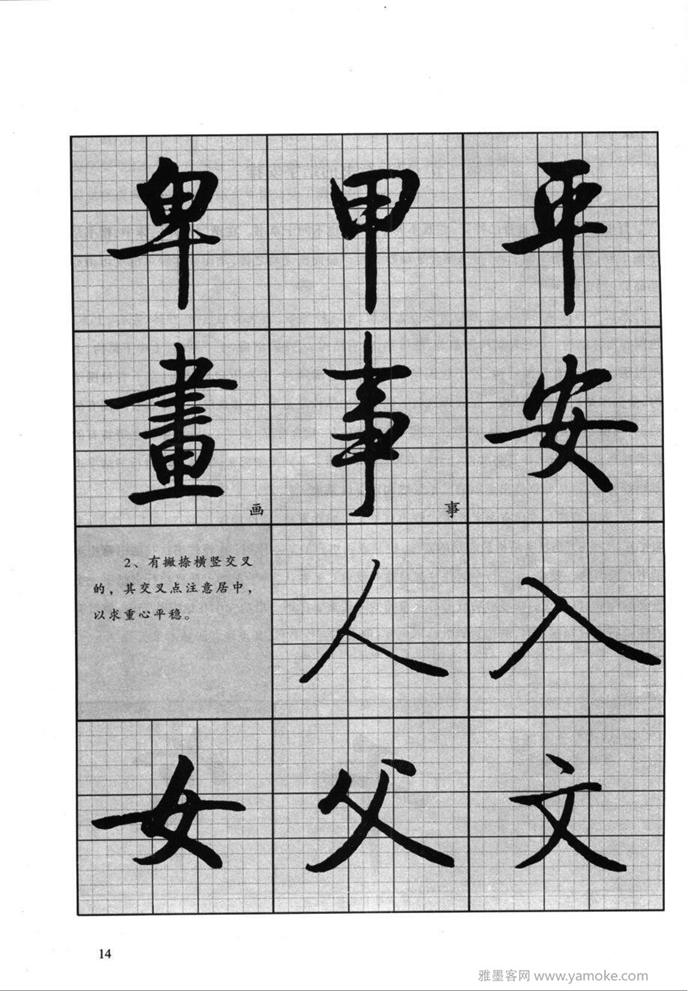 卑甲平
畫事安
画 事
2、有撇捺横竖交叉
的，其交叉点注意居中，
以求重心平稳。
人入
女父文
14
雅墨客网 www.yamoke.com